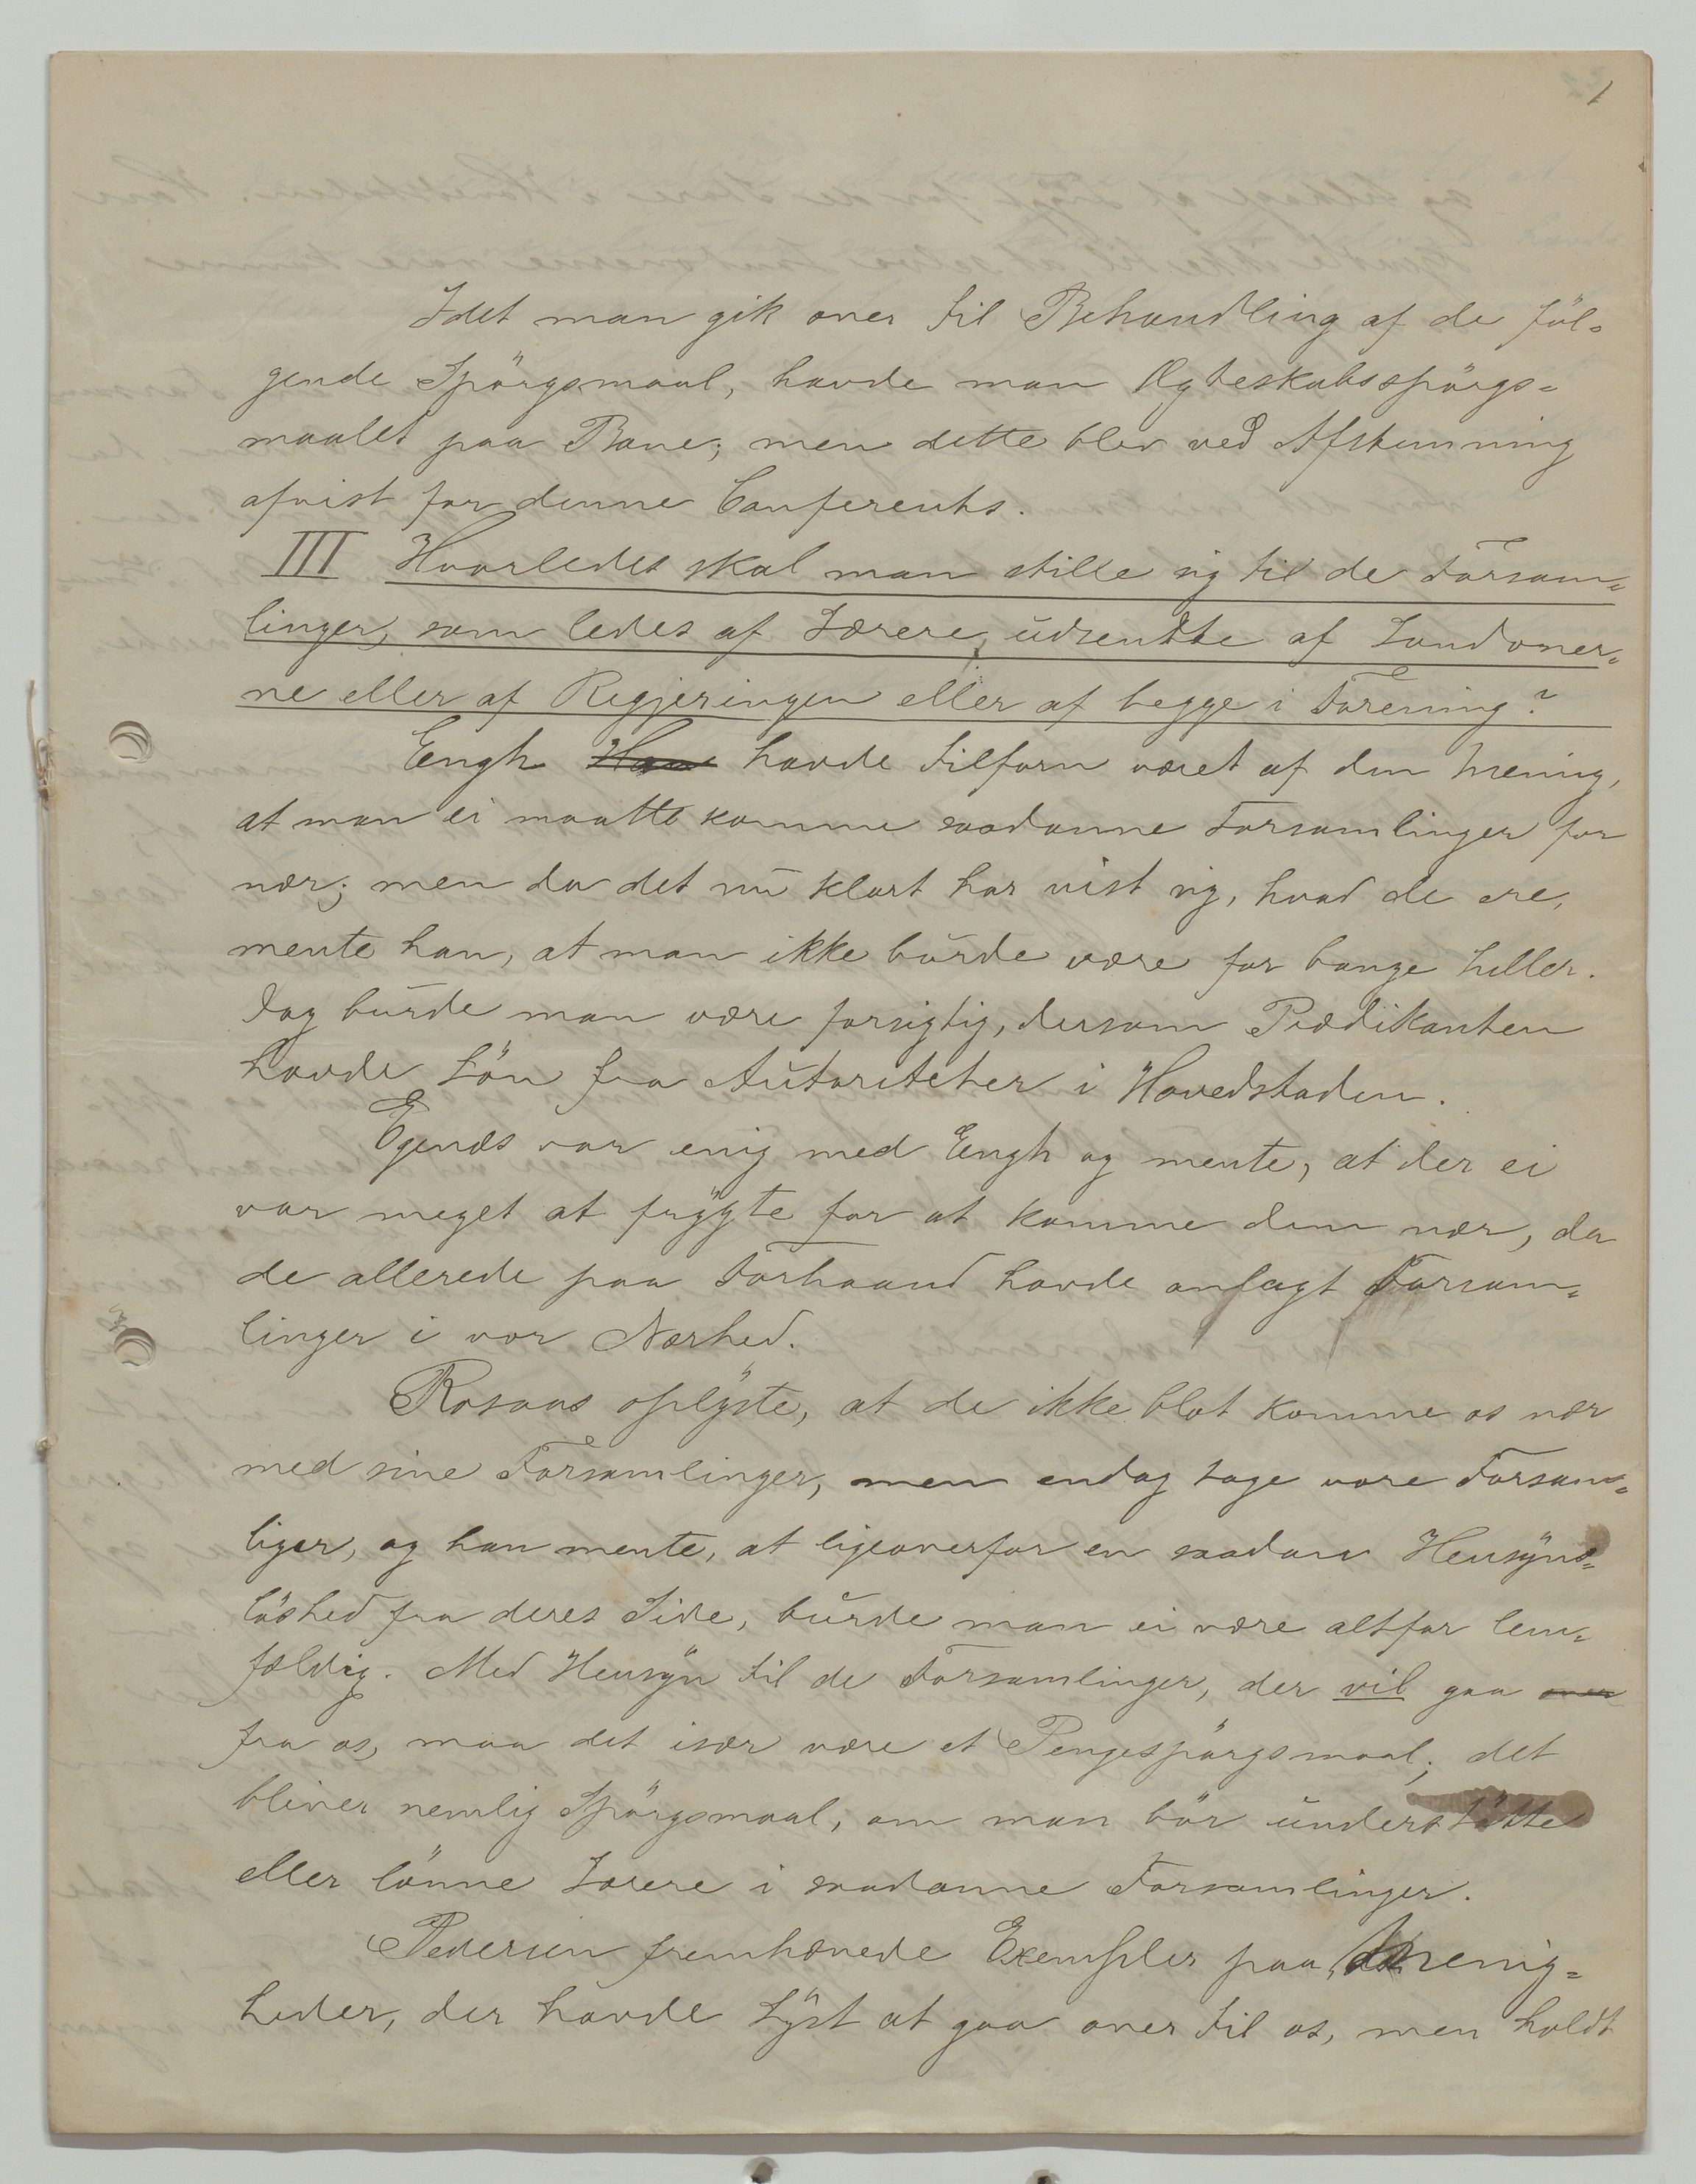 1
Idet man gik over til Behandling af de föl-
gende Spörgsmaal, havde man Ægteskabsspörgs-
maalet paa Bane; men dette blev ved Afstemning
afvist for denne Conferents.
III Hvorledes skal man stille sig til de Forsam-
linger, som ledes af Lærere, udsendte af Londoner-
ne eller af Regjeringen eller af begge i Forening?
Eengh Han havde tilforn været af den Mening,
at man ei maatte komme saadanne Forsamlinger for
nær; men da det nu klart har vist sig, hvad de ere,
mente han, at man ikke burde være for bange heller.
Dog burde man være forsigtig, dersom Prædikanten
havde Lön fra Autoriteter i Hovedstaden.
Egenæs var enig med Eengh og mente, at der ei
var meget at frygte for at komme dem nær, da
de allerede paa Forhaand havde anlagt Forsam-
linger i vor Nærhed.
Rosaas oplyste, at de ikke blot komme os nær
med sine Forsamlinger, men endog tage vore Forsam-
liger, og han mente, at ligeoverfor en saadan Hensyns-
löshed fra deres Side, burde man ei være altfor lem-
fældig. Med Hensyn til de Forsamlinger, der vil gaa over
fra os, maa det især være et Pengespörgsmaal; det
bliver nemlig Spörgsmaal, om man bör understötte
eller lönne Lærere i saadanne Forsamlinger.
Pedersen fremhævede Exempler paa, Menig-
heder, der havde Lyst at gaa over til os, men holdt